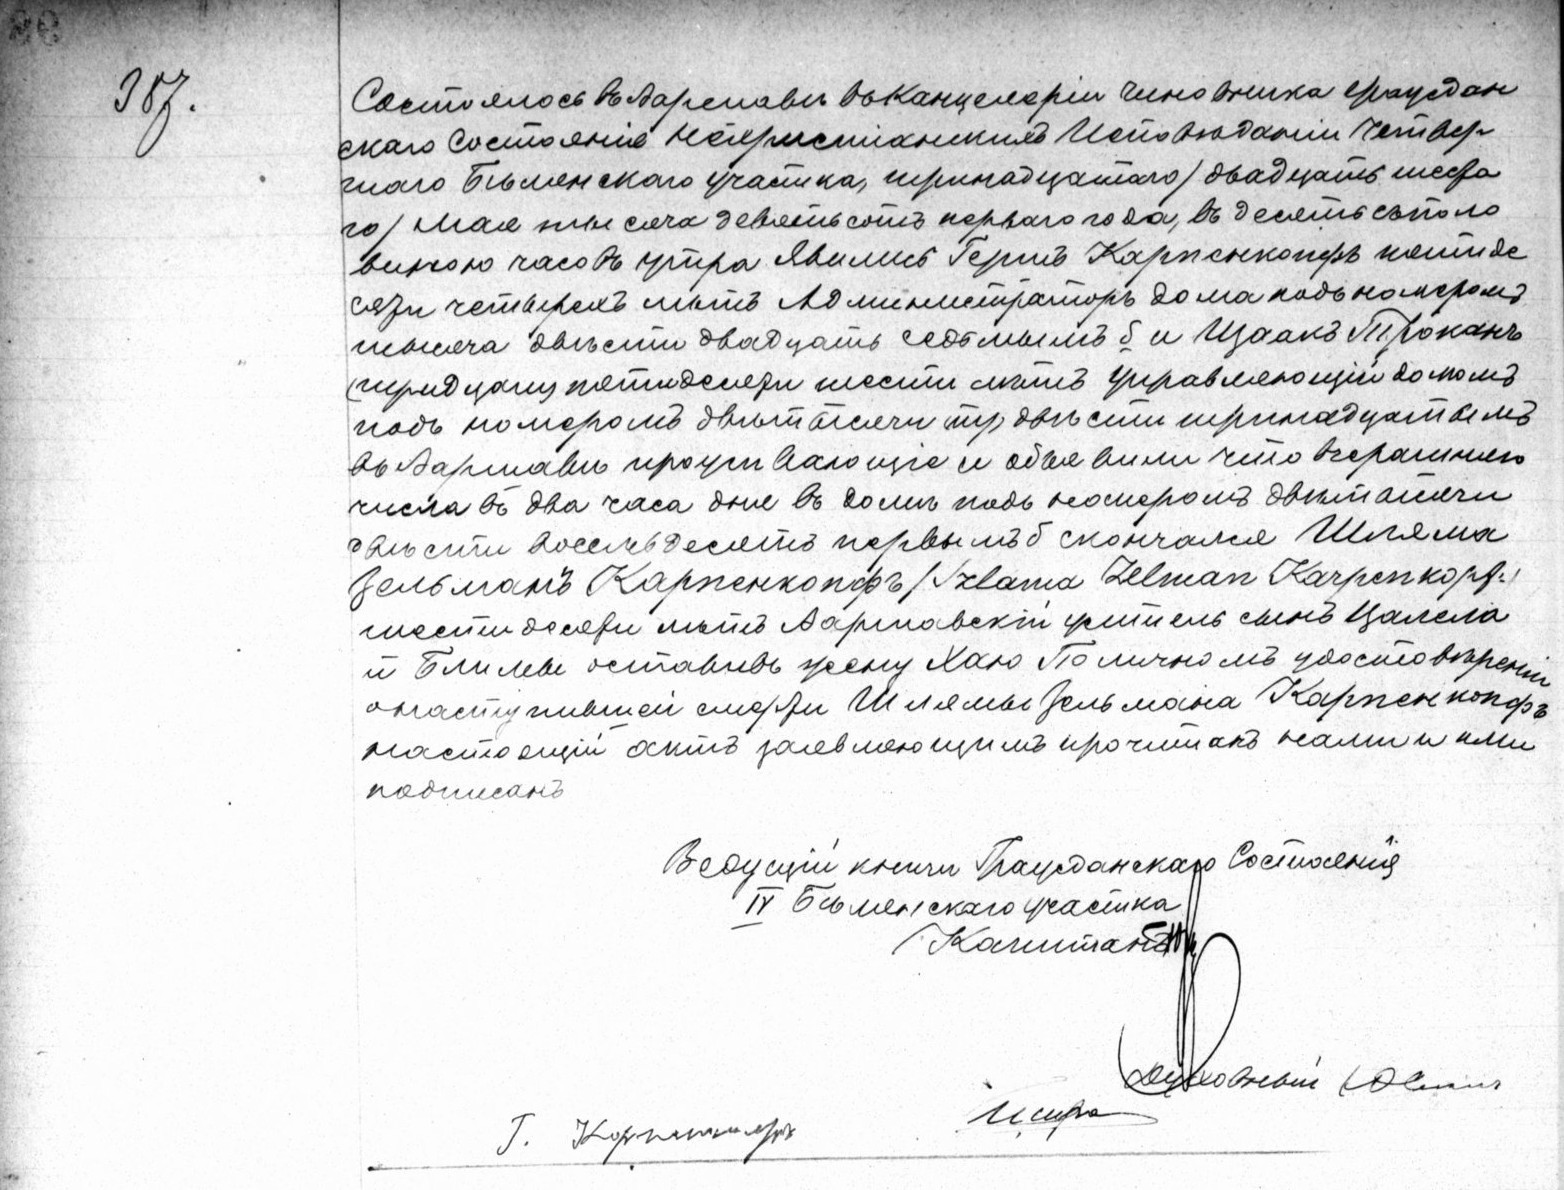 387.
Состоялось въ Варшавѣ въ Канцеляріи Чиновника Граждан
скаго Состоянія Нехристіанскихъ Исповѣданій Четвер
таго Бѣлянскаго участка, тринадцатаго / двадцать шеста
го / Мая тысяча девятьсотъ перваго года, въ десять съ поло
виною часовъ утра Явились Гершъ Карпенкопфъ пятиде
сяти четырехъ лѣтъ Администраторъ дома подъ номеромъ
тысяча двѣсти двадцать седьмымъ б и Ицаакъ
пятидесяти шести лѣтъ Управляющій домомъ
подъ номеромъ двѣ тысячи двѣсти тринадцатымъ
въ Варшавѣ проживающіе и объявили что вчерашняго
числа въ два часа дня въ домѣ подъ номеромъ двѣ тысячи
двѣсти восемьдесятъ первымъ б скончался Шляма
Зельманъ Карпенкопфъ / Szlama Zelman Karpenkopf /
шестидесяти лѣтъ Варшавскій житель сынъ
и Блимы оставивъ жену Хаю По личномъ удостовѣреніи
о наступившей смерти Шлямы Зельмана Карпенкопфъ
настоящій актъ заявляющимъ прочитанъ нами и ими
подписанъ
Ведущій книги Гражданскаго Состоянія
IV Бѣлянскаго участка
Капитанъ
Духовный
Г. Карпенкопфъ